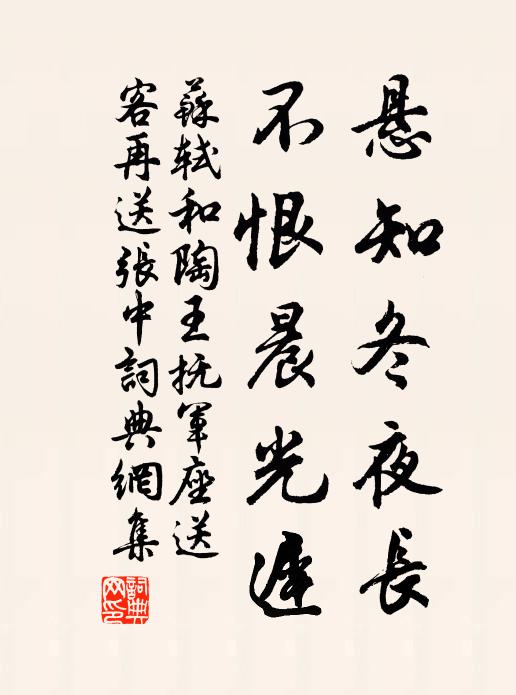 悬知冬夜長
不恨晨光遲
蘇軾和陶王抚軍座送
客再送張中詞典網集
詞典网印